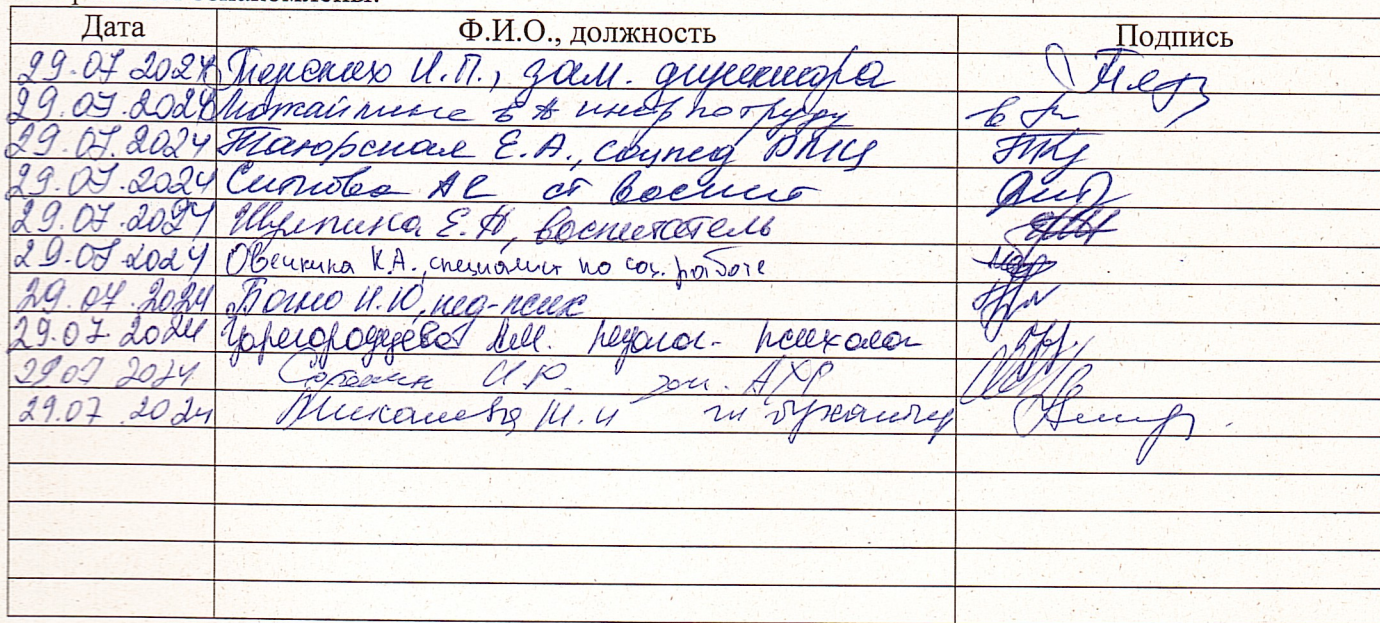 ознакомлены:
Дата Ф.И.О., должность Подпись
29.07 2024 Терских И.П., зам. директора
29.07.2024 инсп по труду
29.07.2024 Таюрская Е.А., соцпед
29.07.2024 Ситова АС ст воспит
29.07.2024 Шулпина Е.Н, воспитатель
29.07.2024 Овечкина К.А., специалист по соц. работе
29.07.2024 И.Ю, пед-псих
29.07.2024 Царегородцева А.М. педагог-психолог
29.07 2024 И.Ю. зам. АХР
29.07.2024 Михалева М.И гл бухгалтер